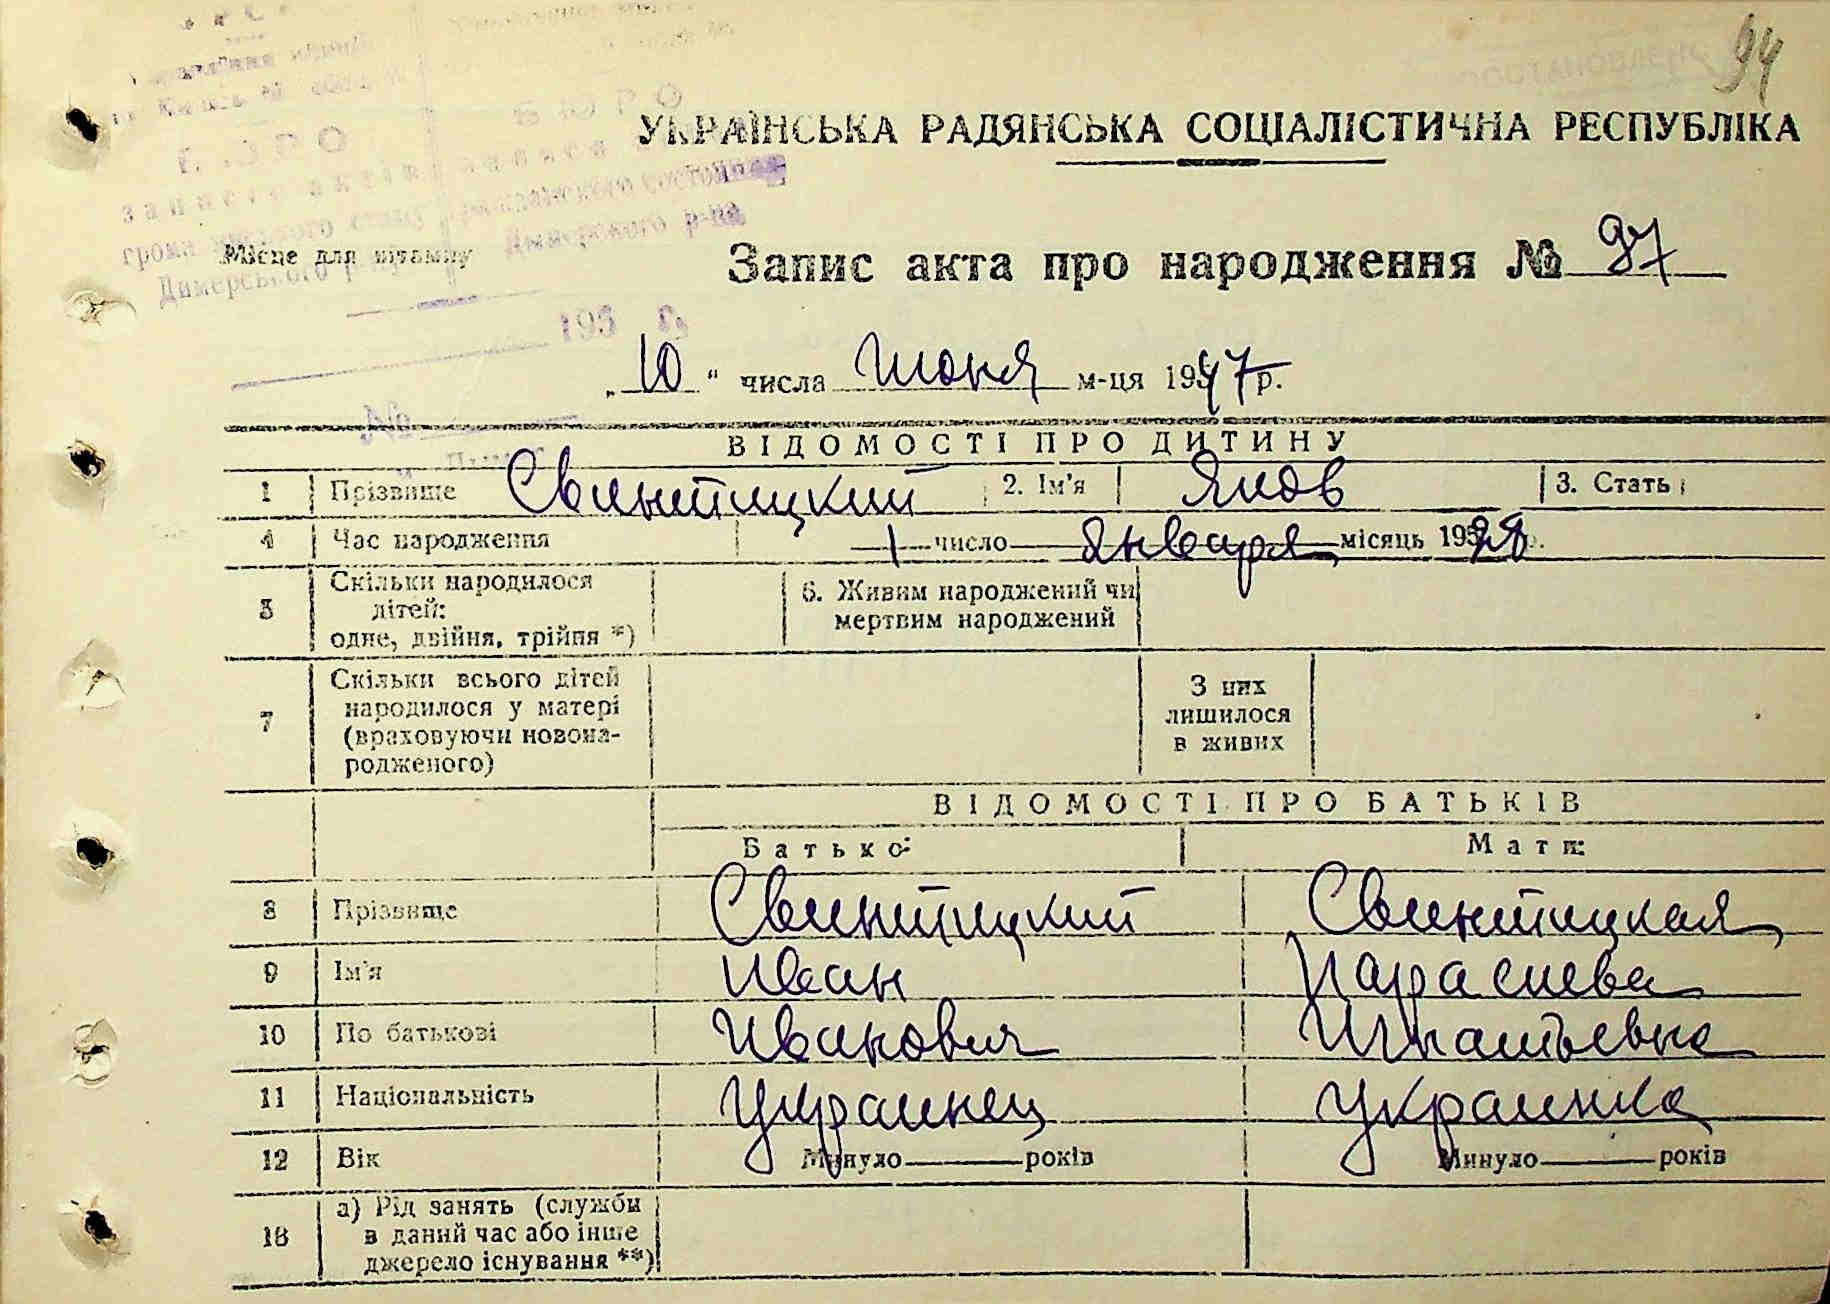 94
УКРАЇНСЬКА РАДЯНСЬКА СОЦІАЛІСТИЧНА РЕСПУБЛІКА
БЮРО
БЮРО
запису актів
громадянського стану гражданского состояния
Димерського р-ну Дымерского р-на
Місце для штампу
Запис акта про народження № 97
195 г.
№
„10“ числа Июня м-ця 1947 р.
ВІДОМОСТІ ПРО ДИТИНУ
1 Прізвище Свинтицкий 2. Ім'я Яков 3. Стать
4 Час народження 1 число января місяць 1928 р.
5 Скільки народилося дітей: одне, двійня, трійня *) 6. Живим народжений чи мертвим народжений
7 Скільки всього дітей народилося у матері (враховуючи новонародженого) З них лишилося в живих
ВІДОМОСТІ ПРО БАТЬКІВ
Батько: Мати:
8 Прізвище Свинтицкий Свинтицкая
9 Ім'я Иван Парасиева
10 По батькові Иванович Игнатьевна
11 Національність Украинец Украинка
12 Вік Минуло року Минуло років
13 а) Рід занять (служби в даний час або інше джерело існування **)